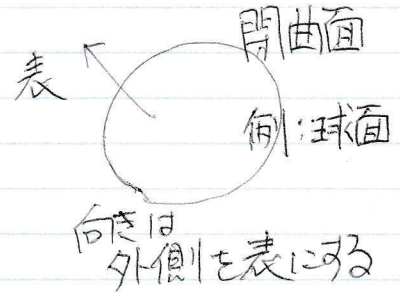 閉曲面
表
例:球面
向きは
外側を表にする